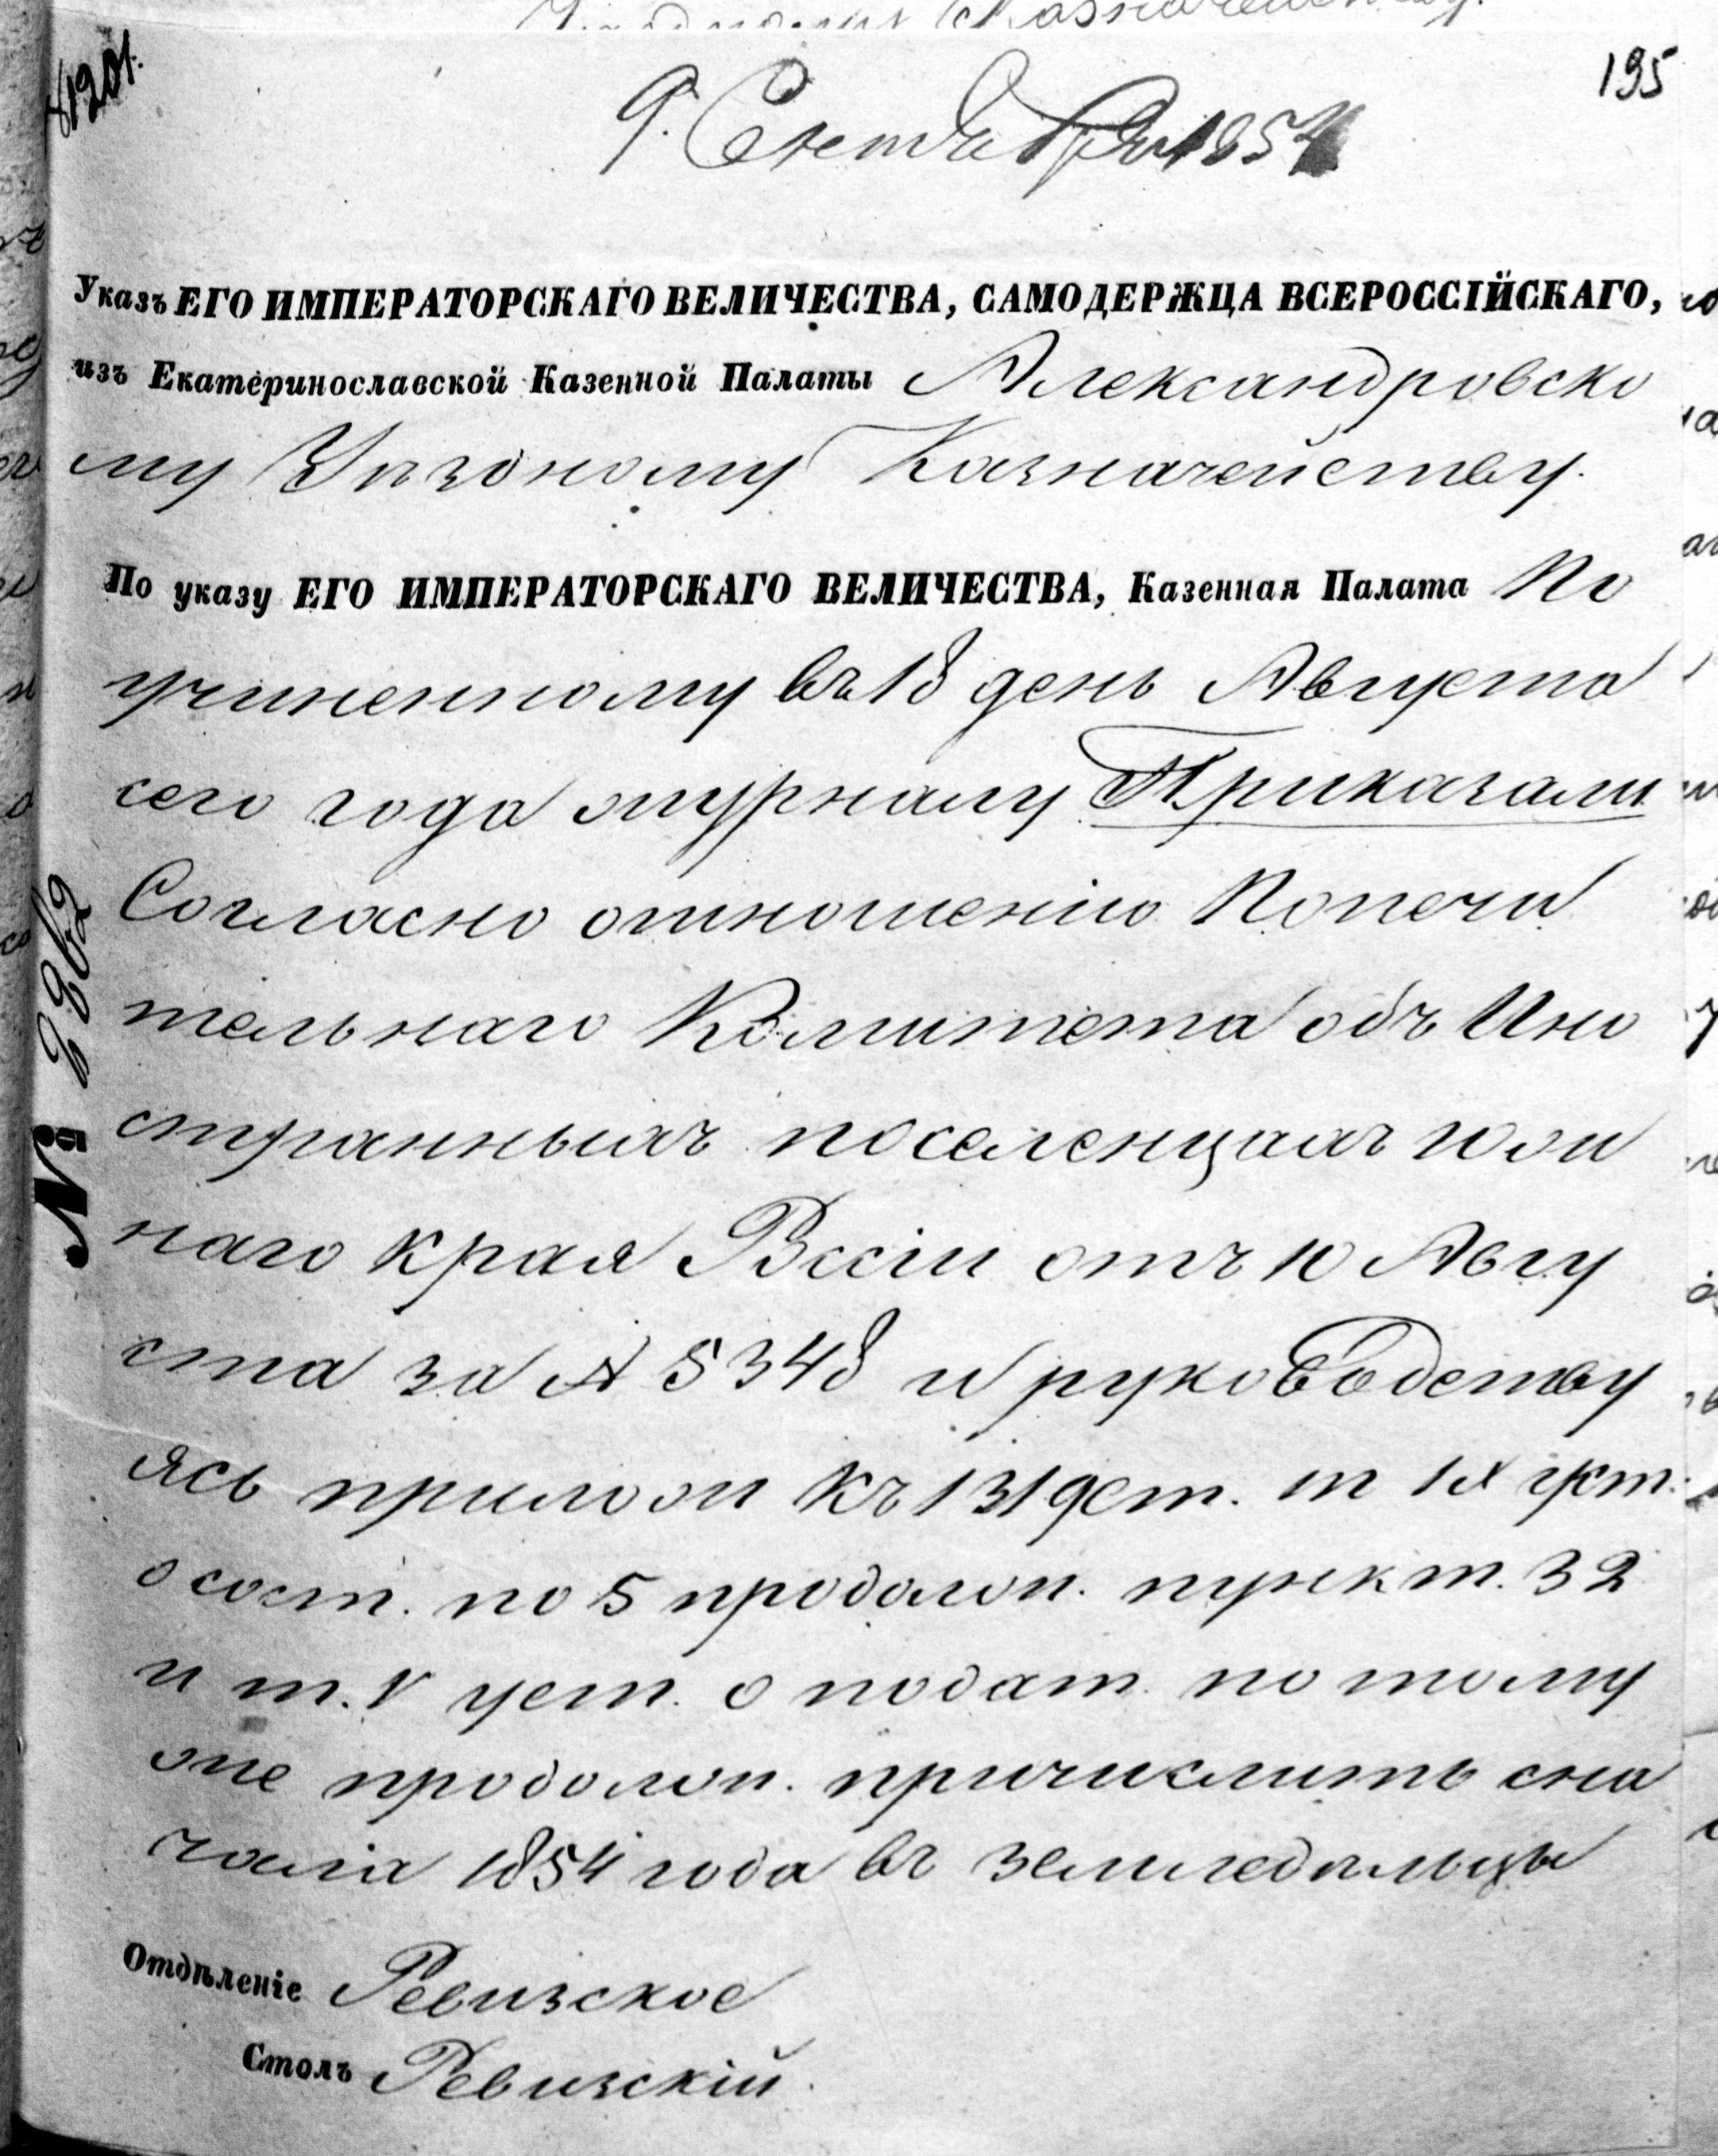 195
9. Сентября 1854
Указъ ЕГО ИМПЕРАТОРСКАГО ВЕЛИЧЕСТВА, САМОДЕРЖЦА ВСЕРОССІЙСКАГО,
изъ Екатеринославской Казенной Палаты Александровско
му Уѣздному Казначейству.
По указу ЕГО ИМПЕРАТОРСКАГО ВЕЛИЧЕСТВА, Казенная Палата По
учиненному въ 18 день Августа
сего года журналу Приказали
Согласно отношенію Попечи
тельнаго Комитета объ Ино
странныхъ поселенцахъ юж
наго края Россіи отъ 10 Авгу
ста за № 5348 и руководству
ясь прилож къ 1319 ст. т IX уст.
о сост. по 5 продолж. пункт. 32
и т. V уст. о подат. по тому
же продолж. причислить сна
чала 1854 года въ земледѣльцы
Отдѣленіе Ревизское
Столъ Ревизскій.
№